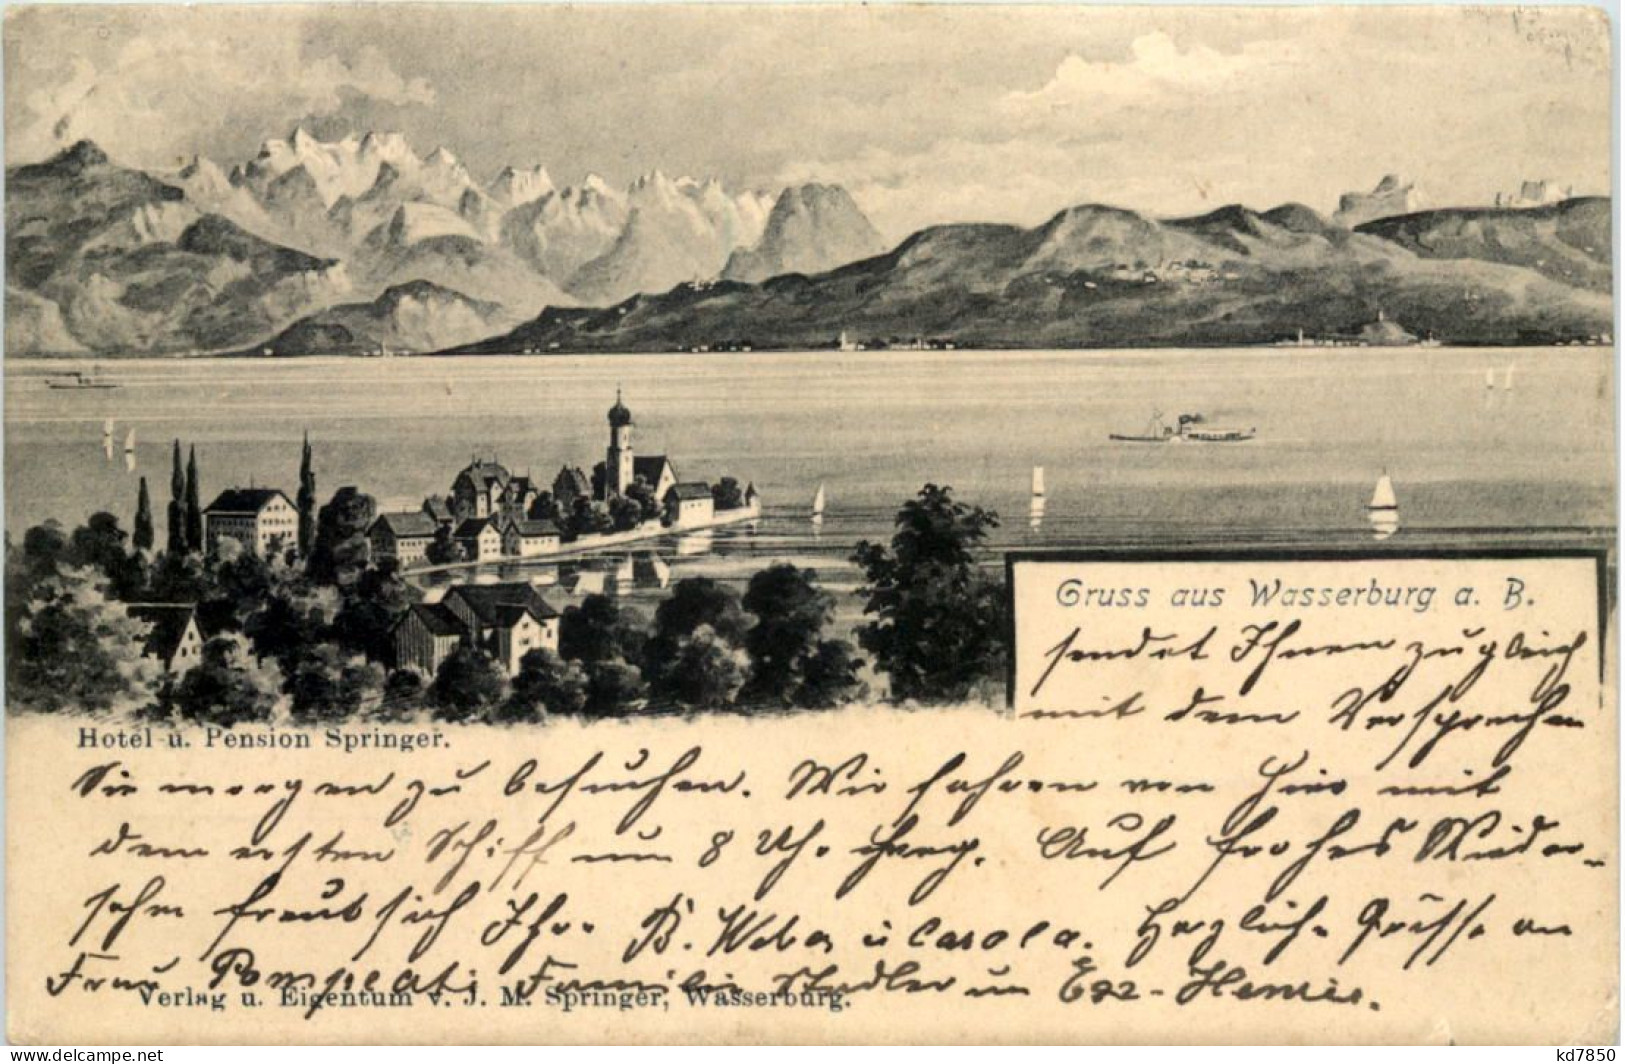 Gruss aus Wasserburg a. B.
sendet Ihnen zugleich
mit dem Versprechen
Hotel u. Pension Springer.
Sie morgen zu besuchen. Wir fahren von hier mit
dem ersten Schiff um 8 Uhr weg. Auf frohes Wieder-
sehn freut sich Ihre B. Weber u Carola. Herzliche Grüsse an
Frau Pompeati Familie Stadler
Verlag u. Eigentum v. J. M. Springer, Wasserburg.
kd7850